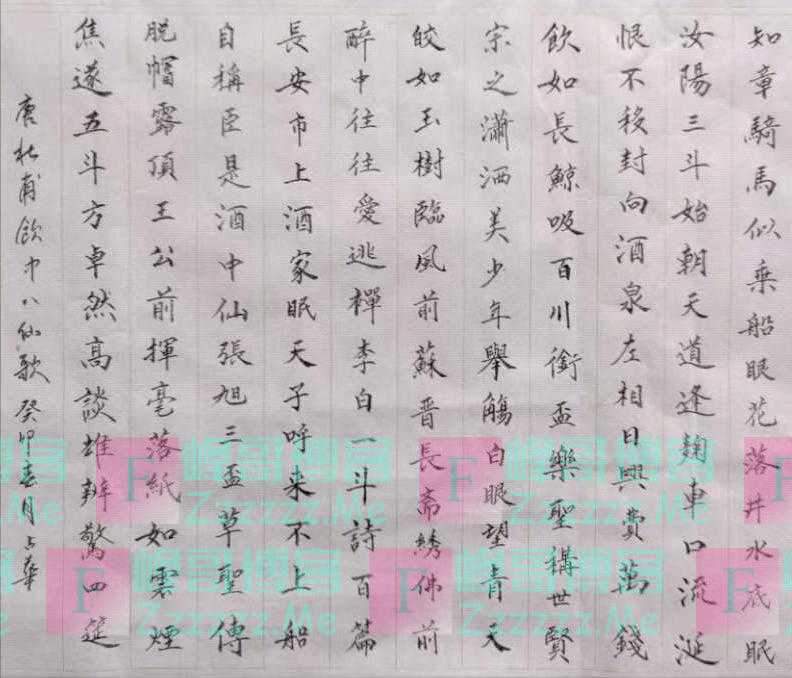 知章騎馬似乘船眼花落井水底眠
汝陽三斗始朝天道逢麹車口流涎
恨不移封向酒泉左相日興費萬錢
飲如長鯨吸百川銜盃樂聖稱世賢
宗之瀟洒美少年舉觴白眼望青天
皎如玉樹臨風前蘇晋長齋綉佛前
醉中往往愛逃禪李白一斗詩百篇
長安市上酒家眠天子呼来不上船
自稱臣是酒中仙張旭三盃草聖傳
脱帽露頂王公前揮毫落紙如雲煙
焦遂五斗方卓然高談雄辨驚四筵
唐杜甫飲中八仙歌癸卯春月占華
峰哥博客
Zzzzzz.Me
F